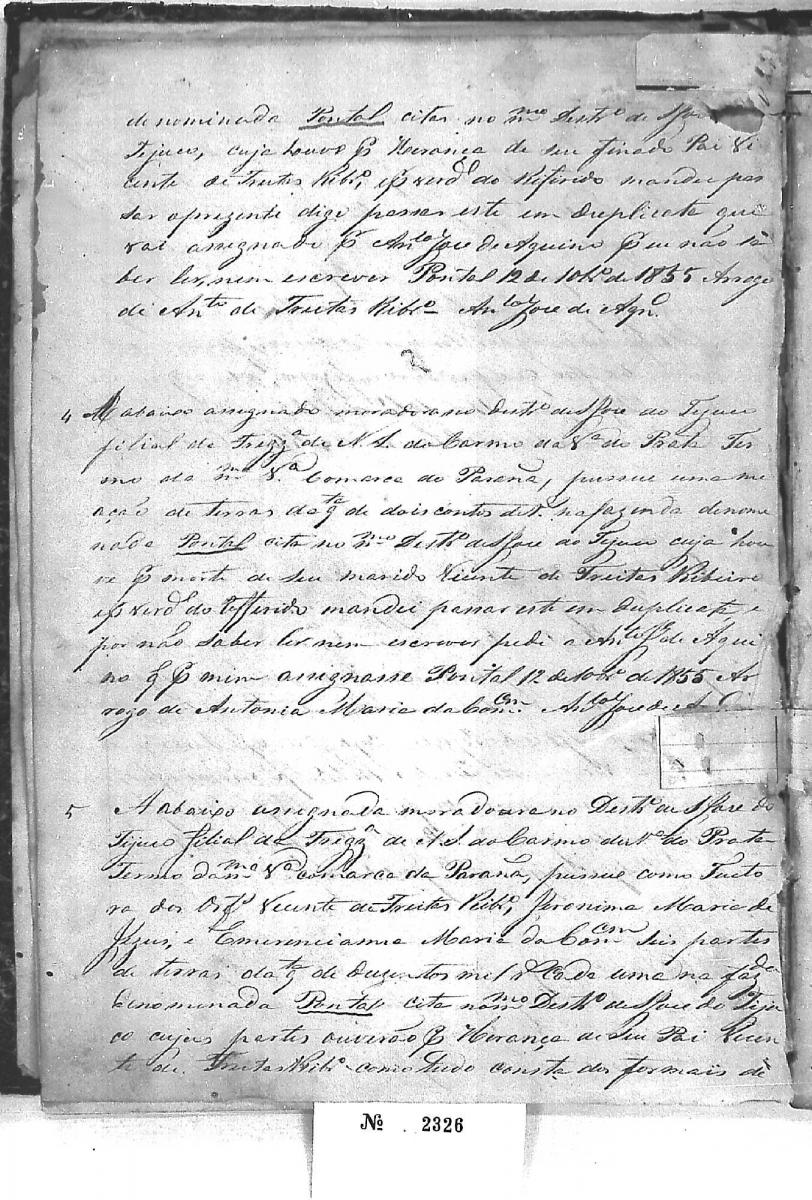 denominada Pontal citas no mmo Destro de S Jose
Tejuco, cuja houve p Herança de seu finado Pai Vi
cente de Freitas Ribro, e p verde do Referido mandei pas
sar aprezente digo passar este em duplicata que
vai assignado p Anto Jose de Aquino p eu não sa
ber ler, nem escrever Pontal 12 de 10bro de 1855 Arogo
de Ante de Freitas Ribro Anto Jose de Aqno
2
4 A abaixo assignado moradora no Destro de S Jose do Tejuco
filial da Fregga de N. S. do Carmo da Va do Prata Ter
mo da mma Va Comarca do Paraná, pussue uma me
ação de terras da qta de dois contos de r. na fazenda denomi
nada Pontal cita no mmo Destro de S Jose do Tejuco cuja hou
ve p morte de seu marido Vicente de Freitas Ribeiro
e p verde do Refferido mandei passar este em duplicata, e
por não saber ler nem escrever pedi a Anto Je de Aqui
no q p mim assignasse Pontal 12 de 10bro de 1855 Ar
rogo de Antonia Maria da Concm Anto Jose de A
5 A abaixo assignada moradoura no Destro de S Jose do
Tejuco filial da Fregga de N. S. do Carmo da Va do Prata
Termo da mma Va comarca da Paraná, pussue como Tuto
ra dos Orfs Vicente de Freitas Ribro, Jeronima Maria de
Jezus, e Emerenciana Maria da Concm Seis partes
de terras da qta de duzentos mil r Cada uma na fazda
denominada Pontal cita no mmo Destro de S Jose do Teju
co cujas partes ouverão p Herança de Seu Pai Vicen
te de Freitas Ribro como tudo consta dos formais de
No 2326